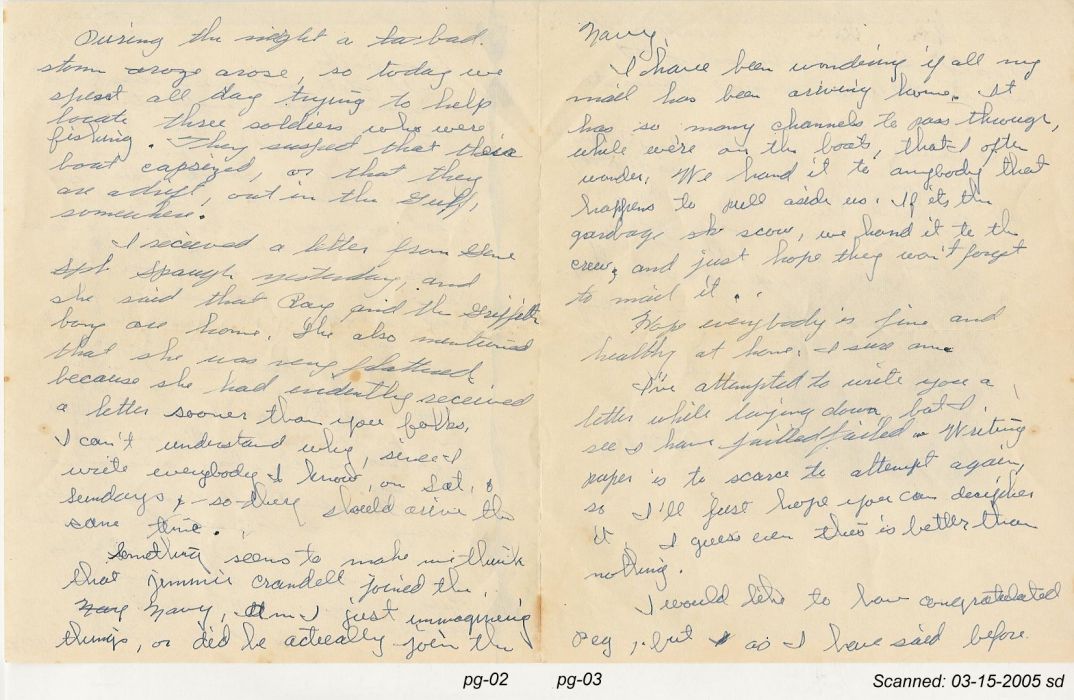 During the night a to bad.
storm aroze arose, so today we
spent all day trying to help
locate three soldiers who were
fishing. They suspect that their
boat capsized, or that they
are adrift, out in the Gulf,
somewhere.
I received a letter from Gene
Sph Spaugh yesterday, and
she said that Ray and the Griffith
boy are home. She also mentioned
that she was very flattered,
because she had evidently received
a letter sooner than you folks.
I can't understand why, since I
write everybody I know, on Sat. &
Sundays & so they should arrive the
same time.
Something seems to make me think
that Jimmie Crandell joined the
Navy, Am I just immagining
things, or did he actually join the
Navy.
I have been wondering if all my
mail has been arriving home. It
has so many channels to pass through,
while we're on the boats, that I often
wonder. We hand it to anybody that
happens to pull aside us. If its the
garbage scow, we hand it to the
crew, and just hope they won't forget
to mail it.
Hope everybody is fine and
healthy at home. I sure am
I've attempted to write you a
letter while laying down, but I
see I have failed failed. Writing
paper is to scarce to attempt again,
so I'll just hope you can decipher
it. I guess even this is better than
nothing.
I would like to have congratulated
Peg, but as I have said before
pg-02 pg-03 Scanned: 03-15-2005 sd